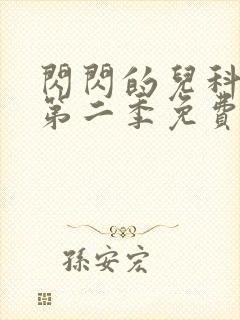 閃閃的兒科
第二季免費
孫安宏